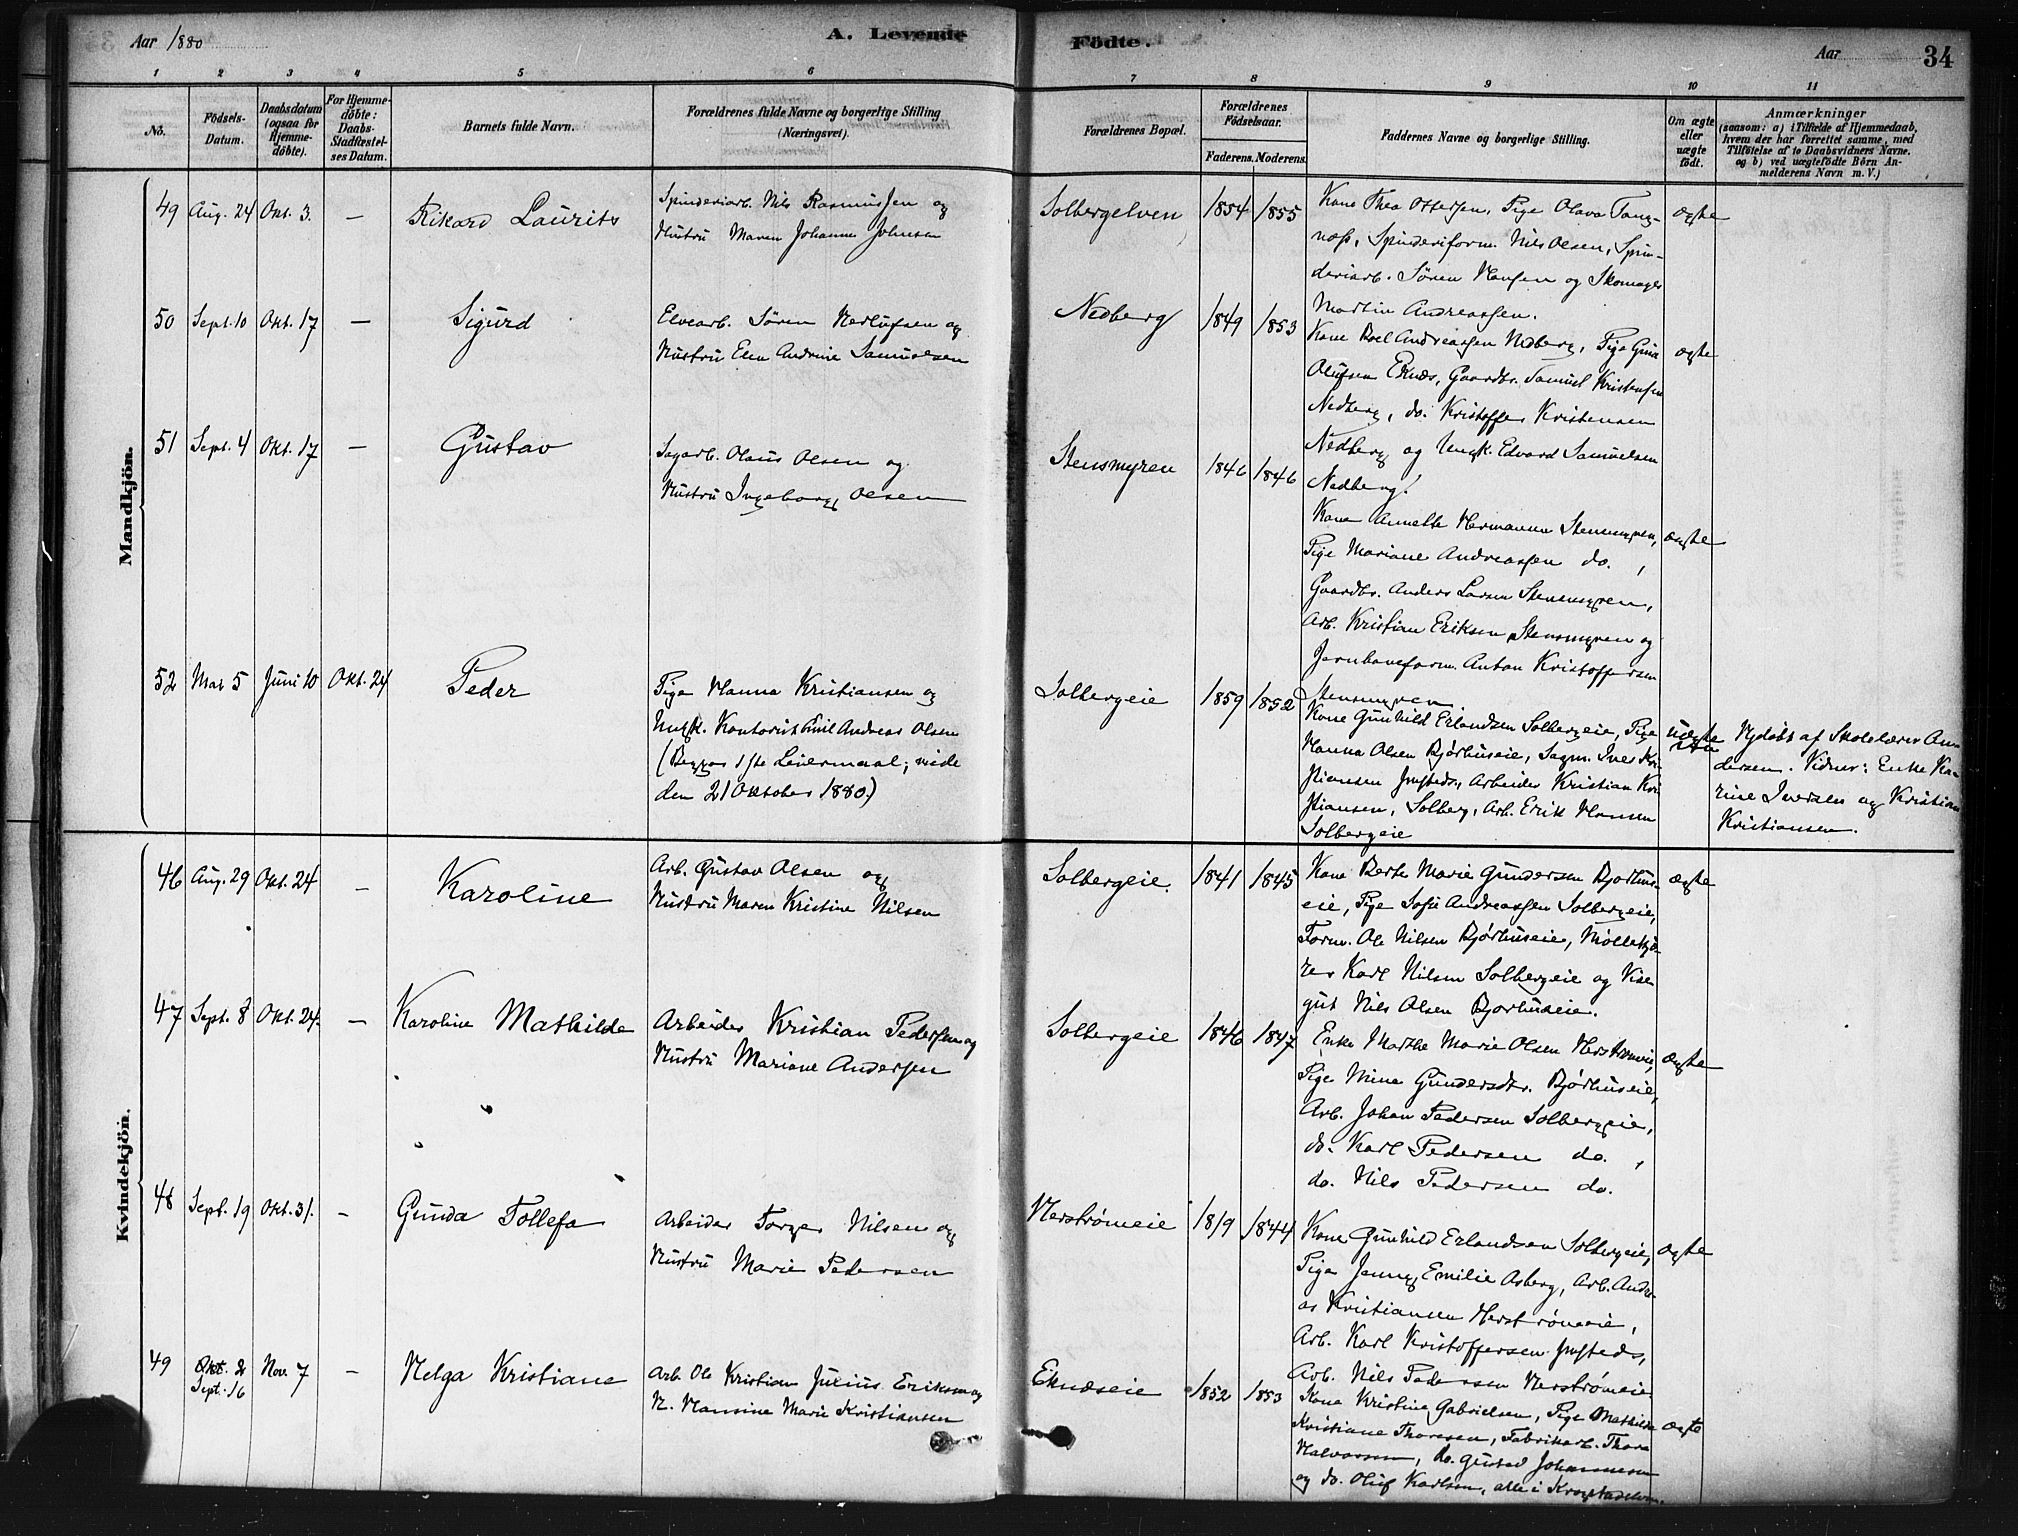 Aar 1880
A. Levende
Födte.
Aar
34
1 2 3 4 5 6 7 8 9 10 11
No.
Födsels-
Datum.
Daabsdatum
(ogsaa for
Hjemme-
döbte).
For Hjemme-
döbte:
Daabs-
Stadfæstel-
ses Datum.
Barnets fulde Navn.
Forældrenes fulde Navne og borgerlige Stilling
(Næringsvei).
Forældrenes Bopæl.
Forældrenes
Födselsaar.
Faderens. Moderens.
Faddernes Navne og borgerlige Stilling.
Om ægte
eller
uægte
födt.
Anmærkninger
(saasom: a) i Tilfælde af Hjemmedaab,
hvem der har forrettet samme, med
Tilföielse af to Daabsvidners Navne,
og b) ved uægtefödte Börn An-
melderens Navn m. V.)
Mandkjön.
49 Aug. 24 Okt. 3. — Rikard Laurits
Spinderiarb. Nils Rasmussen og
Hustru Maren Johanne Johnsen
Solbergelven 1854 1855
Kone Thea Ottersen, Pige Olava Tang-
næss, Spinderiform. Nils Olsen, Spin-
deriarb. Sören Hansen og Skomager
Martin Andreassen.
ægte
50 Sept. 10 Okt. 17 — Sigurd
Elvearb. Sören Nedlufsen og
Hustru Elen Andrine Samuelsen
Nedberg 1849 1853
Kone Boel Andreassen Nedberg, Pige Gina
Olufsen Eknæs, Gaardbr. Samuel Kristensen
Nedberg, do. Kristoffer Kristensen
Nedberg og Ungk. Edvard Samuelsen
Nedberg.
ægte
51 Sept. 4 Okt. 17 — Gustav
Sagarb. Olaus Olsen og
Hustru Ingeborg Olsen
Stensmyren 1846 1846
Kone Annette Hermansen Stensmyren,
Pige Mariane Andreassen do. ,
Gaardbr. Anders Larsen Stensmyren,
Arb. Kristian Eriksen Stensmyren og
Jernbaneform. Anton Kristoffersen
Stensmyren.
ægte
52 Mai 5 Juni 10 Okt. 24 Peder
Pige Hanna Kristiansen og
Ungk. Kontorist Emil Andreas Olsen
(Begges 1ste Leiermaal; viede
den 21 Oktober 1880.)
Solbergeie 1859 1852
Kone Gunhild Erlandsen Solbergeie, Pige
Hanna Olsen Bjørhuseie, Sagm. Iver Kri-
stiansen Ipsteds, Arbeider Kristian Kri-
stiansen, Solberg, Arb. Erik Hansen
Solbergeie
uægte
Hjdøbt af Skolelærer An-
dersen. Vidner: Enke Ka-
rine Iversen og Kristian
Kristiansen.
Kvindekjön.
46 Aug. 29 Okt. 24 — Karoline
Arb. Gustav Olsen og
Hustru Maren Kristine Nilsen
Solbergeie. 1841 1845
Kone Berte Marie Gundersen Bjørhus-
eie, Pige Sofie Andreassen Solbergeie,
Form. Ole Nilsen Bjørhuseie, Møllekjø-
rer Karl Nilsen Solbergeie og Vise-
gut Nils Olsen Bjorhuseie.
ægte
47 Sept. 8 Okt. 24. — Karoline Mathilde
Arbeider Kristian Pedersen og
Hustru Mariane Andersen
Solbergeie 1846 1847
Enke Marthe Marie Olsen Herstrømeie,
Pige Mina Gundersdtr. Bjørhuseie,
Arb. Johan Pedersen Solbergeie,
do. Karl Pedersen do. ,
do. Nils Pedersen do.
ægte
48 Sept. 19 Okt. 31. — Gunda Tollefa
Arbeider Torger Nilsen og
Hustru Marie Pedersen
Herstrømeie 1819 1844
Kone Gunhild Erlandsen Solbergeie,
Pige Jenny Emilie Asberg, Arb. Andre-
as Kristiansen Herstrømeie,
Arb. Karl Kristoffersen Ipsteds,
Arb. Nils Pedersen Herstrømeie
ægte
49 Okt. 2 Sept. 16 Nov. 7 — Helga Kristiane
Arb. Ole Kristian Julius Eriksen og
H. Hansine Marie Kristiansen
Eknæseie 1852 1853
Kone Kristine Gabrielsen, Pige Mathilde
Kristiane Thoresen, Fabrikarb. Thore
Halvorsen, do. Gustav Johannesen
og do. Oluf Karlsen, alle i Krogstadelven.
ægte